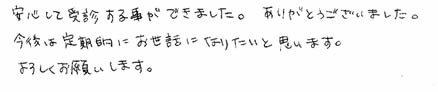 安心して受診する事ができました。 ありがとうございました。
今後は定期的にお世話になりたいと思います。
よろしくお願いします。